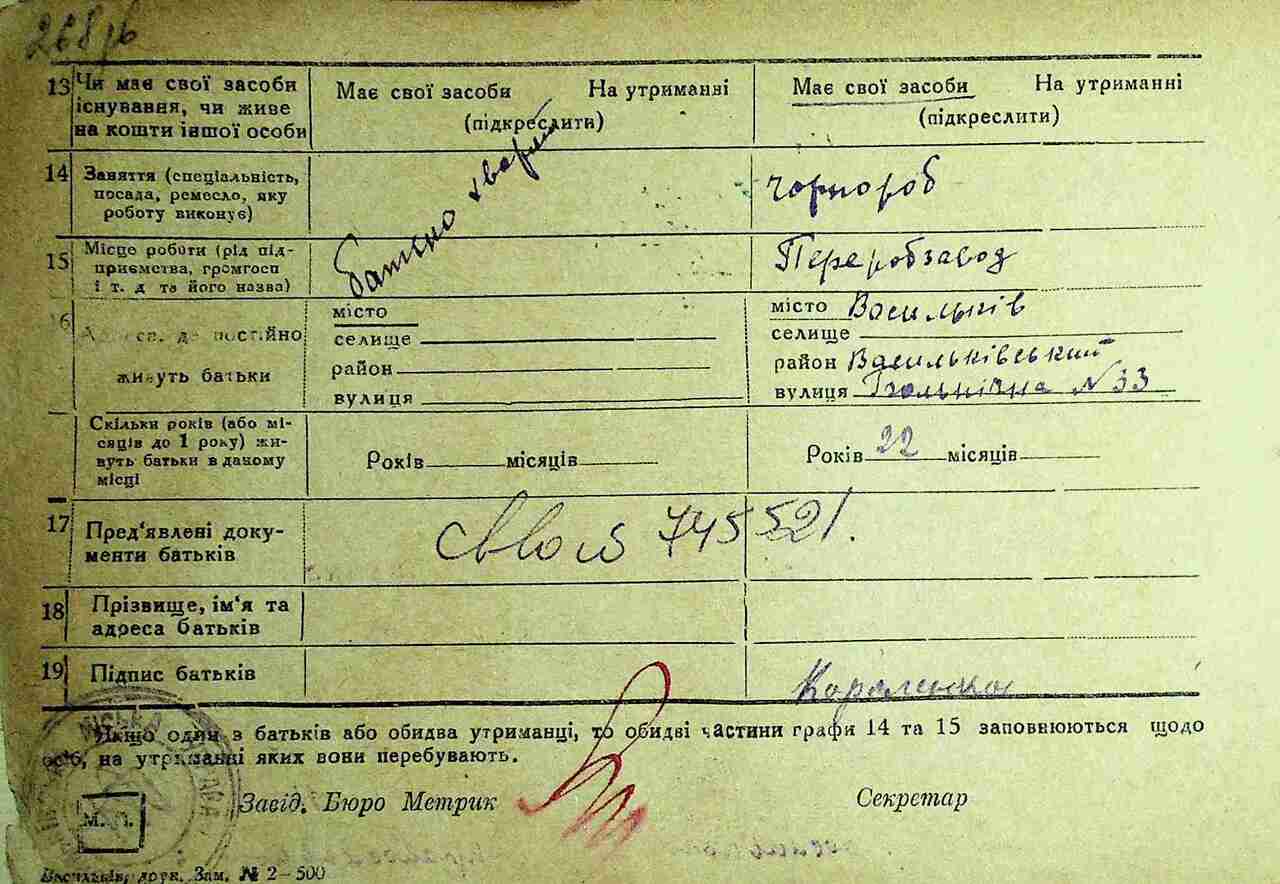 268 зв
13 Чи має свої засоби існування, чи живе на кошти іншої особи
Має свої засоби На утриманні
(підкреслити)
Має свої засоби На утриманні
(підкреслити)
14 Заняття (спеціальність, посада, ремесло, яку роботу виконує)
чорнороб
15 Місце роботи (рід підприємства, громгосп і т. д та його назва)
Переробзавод
16 де постійно
живуть батьки
місто
селище
район
вулиця
місто Васильків
селище
район Васильківський
вулиця № 33
Скільки років (або місяців до 1 року) живуть батьки в даному місці
Років місяців
Років 22 місяців
17 Пред'явлені документи батьків
745521.
18 Прізвище, ім'я та адреса батьків
19 Підпис батьків
Якщо один з батьків або обидва утриманці, то обидві частини графи 14 та 15 заповнюються щодо
осіб, на утриманні яких вони перебувають.
Завід. Бюро Метрик
Секретар
МІСЬКА
М. П.
Васильків, друк. Зам. № 2—500